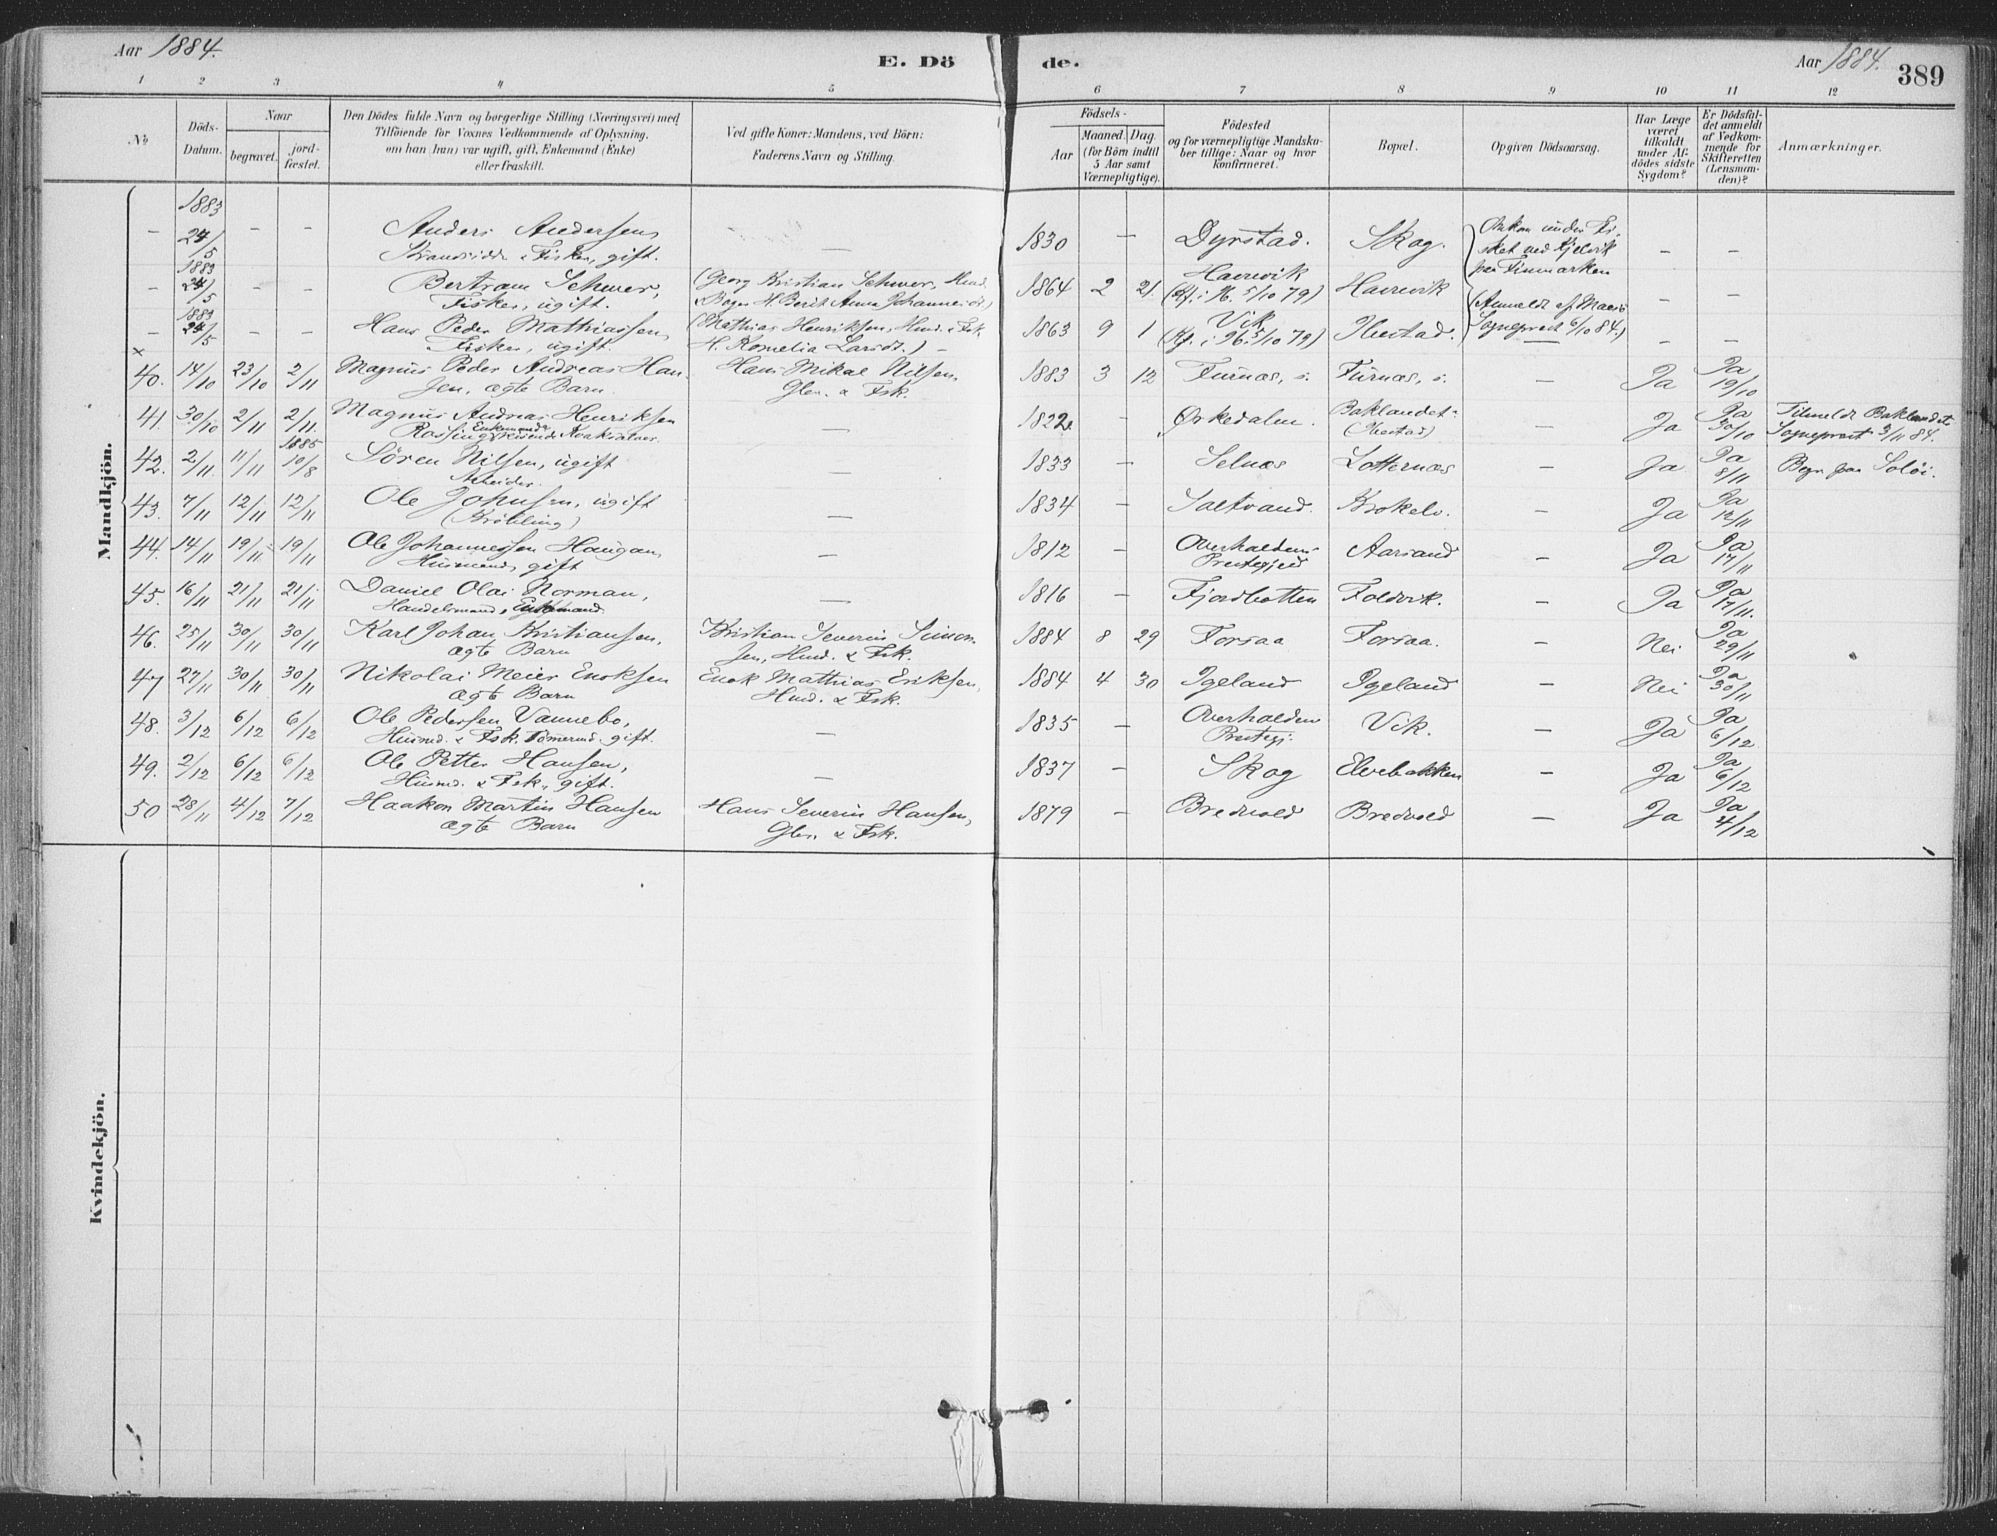 Aar 1884.
E. Dö
de.
Aar 1884.
389
1 2 3 4 5 6 7 8 9 10 11 12
No.
Döds-
Datum.
Naar
begravet.
jord-
fæstet.
Den Dödes fulde Navn og borgerlige Stilling (Næringsvei) med
Tilföiende for Voxnes Vedkommende af Oplysning,
om han (hun) var ugift, gift, Enkemand (Enke)
eller fraskilt.
Ved gifte Koner: Mandens, ved Börn:
Faderens Navn og Stilling.
Födsels-
Aar
Maaned. Dag.
(for Börn indtil
5 Aar samt
Værnepligtige).
Födested
og for værnepligtige Mandska-
ber tillige: Naar og hvor
konfirmeret.
Bopæl.
Opgiven Dödsaarsag.
Har Læge
været
tilkaldt
under Af-
dödes sidste
Sygdom?
Er Dödsfal-
det anmeldt
af Vedkom-
mende for
Skifteretten
(Lensman-
den)?
Anmærkninger.
Mandkjön.
1883
– 24/5 – – Anders Andersen, — 1830 — Dyrstad. Skog. Omkom under Fi-
Strandsidder & Fisker, gift.
sket ved Kjelvik
paa Finmarken
1883
– 24/5 – – Bertram Schwer, (Georg Kristian Schwer, Hmd. 1864 2 21 Havnvik Havnvik – –
Fisker, ugift. (Kf. i 5/10 79)
(Anmeldt af Maasö
Sogneprest 6/10 84.)
1883
– 24/5 – – Hans Peder Mathiassen, (Mathias Henriksen, Hmd. & Fsk. 1863 9 1 Vik Ibestad. – –
Fisker, ugift. H. Kornelia Larsdt.) (Kf. i 5/10 79)
×
40. 14/10 23/10 2/11 Magnus Peder Andreas Han- Hans Mikal Nilsen, 1883 3 12 Furnæs, i. Furnæs, i. — Ja Ja 19/10
sen, ægte Barn Gbr. & Fsk.
41. 30/10 2/11 2/11 Magnus Andreas Henriksen — 1822 — Orkedalen. Baklandet — Ja Ja 30/10 Tilmeldt Baklandets
Rossing, Enkemand (Ibestad) Sogneprest 3/11 84.
1885
42. 2/11 11/11 10/8 Sören Nilsen, ugift — 1833 — Selnæs Lotternæs — Ja Ja 8/11 Begr. paa Solöi.
Arbeider
43. 7/11 12/11 12/11 Ole Johnsen, ugift — 1834 — Saltvand. Krokelv. — Ja Ja 12/11
(Kröbling)
44. 14/11 19/11 19/11 Ole Johannessen Haugan, — 1812 — Overhalden Aarsand — Ja Ja 17/11
Husmand, gift Prestegjeld
45. 16/11 21/11 21/11 Daniel Olai Norman, — 1816 — Fjordbotten Foldvik. — Ja Ja 17/11.
Handelsmand, Enkemand
46. 25/11 30/11 30/11 Karl Johan Kristiansen, Kristian Severin Simon- 1884 8 29 Forsaa Forsaa. — Nei Ja 29/11
ægte Barn sen, Hmd. & Fsk.
47 27/11 30/11 30/11 Nikolai Meier Enoksen Enok Mathias Eriksen, 1884 4 30 Igeland Igeland — Nei Ja 30/11
ægte Barn Hmd. & Fsk.
48. 3/12 6/12 6/12 Ole Pedersen Vannebo, — 1835 — Overhalden Vik. — Ja Ja 6/12
Husmd. & Fsk. Tömermd. gift. Prestegj.
49. 2/12 6/12 6/12 Ole Petter Hansen, — 1837 — Skog Elvebakken — Ja Ja 6/12
Husmd. & Fsk., gift.
50 28/11 4/12 7/12 Haakon Martin Hansen Hans Severin Hansen, 1879 — Bredvold Bredvold — Ja Ja 4/12
ægte Barn Gbr. & Fsk.
Kvindekjön.